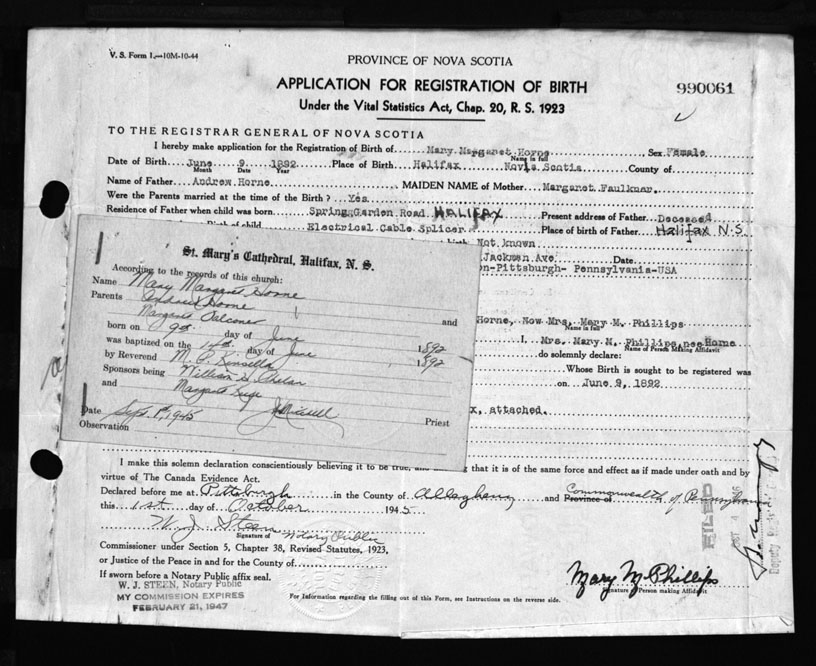 V. S. Form 1.—10M-10-44
PROVINCE OF NOVA SCOTIA
APPLICATION FOR REGISTRATION OF BIRTH
990061
Under the Vital Statistics Act, Chap. 20, R. S. 1923
TO THE REGISTRAR GENERAL OF NOVA SCOTIA
I hereby make application for the Registration of Birth of Mary Margaret Horne Sex Female
Name in full
Date of Birth June 9 1892 Place of Birth Halifax Nova Scotia County of
Month Date Year
Name of Father Andrew Horne MAIDEN NAME of Mother Margaret Faulkner.
Were the Parents married at the time of the Birth? Yes
Residence of Father when child was born Spring Garden Road HALIFAX Present address of Father Deceased
of child Electrical Cable Splicer Place of birth of Father Halifax N.S.
birth Not known
Jackman Ave. Date
on-Pittsburgh- Pennsylvania-USA
Horne, Now Mrs. Mary M. Phillips
Name in full
I, Mrs. Mary M. Phillips, nee Horne
Name of Person Making Affidavit
do solemnly declare:
Whose Birth is sought to be registered was
on June 9, 1892
x, attached.
St. Mary's Cathedral, Halifax, N. S.
According to the records of this church:
Name Mary Margaret Horne
Parents Andrew Horne
and
Margaret Falconer
born on 9th day of June 1892
was baptized on the 14th day of June 1892
by Reverend M. P. Kinsella
Sponsors being William D. Phelan
and Margaret
Date Sept. 1, 1945 Priest
Observation
I make this solemn declaration conscientiously believing it to be true, and that it is of the same force and effect as if made under oath and by
virtue of The Canada Evidence Act.
Declared before me at Pittsburgh in the County of Allegheny and Province of Commonwealth of Pennsylvania
this 1st day of October 1945
W. J. Steen Notary Public
Signature of
Commissioner under Section 5, Chapter 38, Revised Statutes, 1923,
or Justice of the Peace in and for the County of
If sworn before a Notary Public affix seal.
W. J. STEEN, Notary Public
MY COMMISSION EXPIRES
FEBRUARY 21, 1947
Mary M Phillips
Signature of Person making Affidavit
For Information regarding the filling out of this Form, see Instructions on the reverse side.
FILED
OCT 4